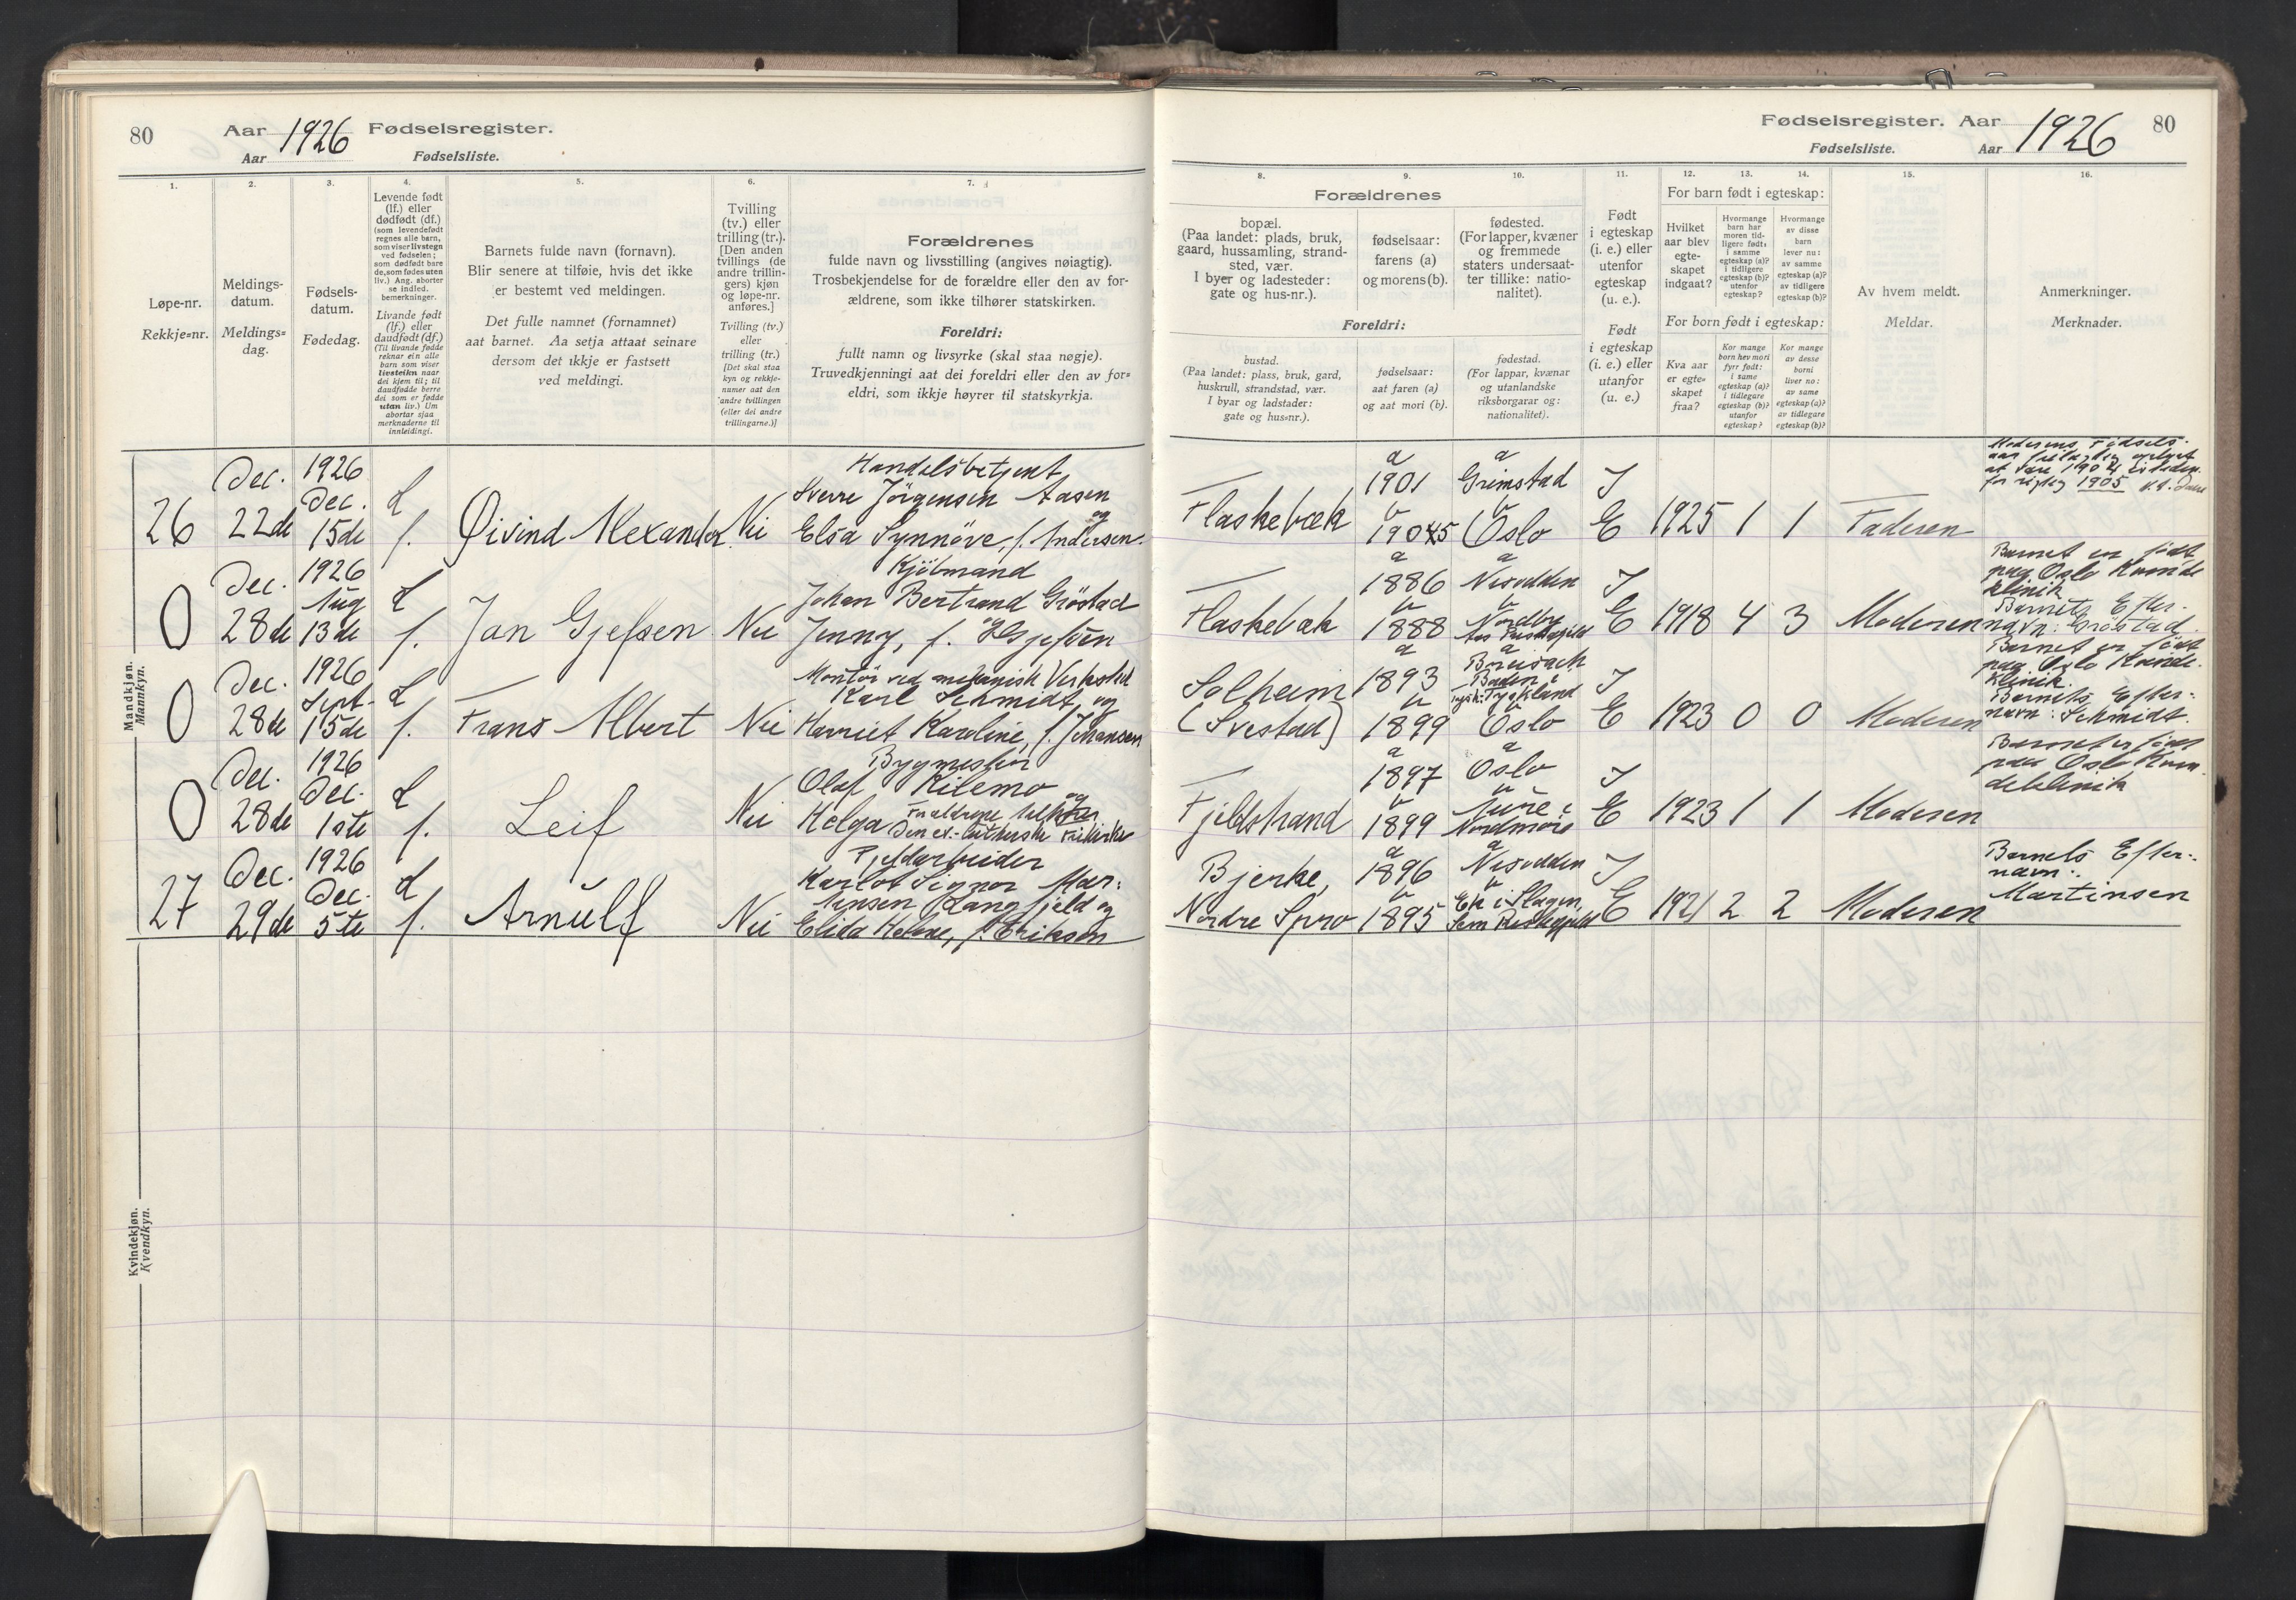 80
Aar 1926 Fødselsregister.
Aar
Fødselsliste.
1.
2.
3.
4.
5.
6.
7.
Løpe-nr.
Rekkje=nr.
Meldings-
datum.
Meldings=
dag.
Fødsels-
datum.
Fødedag.
Levende født
(lf.) eller
dødfødt (df.)
(som levendefødt
regnes alle barn,
som viser livstegn
ved fødselen;
som dødfødt bare
de, som fødes uten
liv.) Ang. aborter
se indled.
bemerkninger.
Livande født
(lf.) eller
daudfødt (df.)
(Til livande fødde
reknar ein alle
barn som viser
livsteikn naar
dei kjem til; til
daudfødde berre
dei som er fødde
utan liv.) Um
abortar sjaa
merknaderne til
innleidingi.
Barnets fulde navn (fornavn).
Blir senere at tilføie, hvis det ikke
er bestemt ved meldingen.
Det fulle namnet (fornamnet)
aat barnet. Aa setja attaat seinare
dersom det ikkje er fastsett
ved meldingi.
Tvilling
(tv.) eller
trilling (tr.).
[Den anden
tvillings (de
andre trillin-
gers) kjøn
og løpe-nr.
anføres.]
Tvilling (tv.)
eller
trilling (tr.)
[Det skal staa
kyn og rekkje-
numer aat den
andre tvillingen
(eller dei andre
trillingarne.)]
Forældrenes
fulde navn og livsstilling (angives nøiagtig).
Trosbekjendelse for de forældre eller den av for-
ældrene, som ikke tilhører statskirken.
Foreldri:
fullt namn og livsyrke (skal staa nøgje).
Truvedkjenningi aat dei foreldri eller den av for=
eldri, som ikkje høyrer til statskyrkja.
Mandkjøn.
Mannkyn.
Kvindekjøn.
Kvendkyn.
26
Dec.
22de
1926
Dec.
15de
L
f.
Øivind Alexander.
Nei
Handelsbetjent
Sverre Jörgensen Aasen
og
Elsa Synnöve, f. Andersen.
0
Dec.
28de
1926
Aug
13de
L
f.
Jan Gjessen
Nei
Kjöbmand
Johan Bertrand Gröstad
og
Jenny, f. Gjessen
0
Dec.
28de
1926
Sept.
15de
L
f.
Frans Albert
Nei
Montör ved mekanisk Verksted
Karl Schmidt og
Harriet Karoline, f. Johansen
0
Dec.
28de
1926
Dec.
1ste
L
f.
Leif
Nei
Bygmester
Olaf Kilemo og
Helga
Den ev.-lutherske Frikirke
27
Dec.
29de
1926
Dec.
5te
L
f.
Arnulf
Nei
Fjeldarbeider
Karlot Signor Mar-
tinsen Langfjeld og
Elida Helene, f. Eriksen
Fødselsregister. Aar 1926
80
Fødselsliste.
Aar
8.
9.
10.
11.
12.
13.
14.
15.
16.
Forældrenes
bopæl.
(Paa landet: plads, bruk,
gaard, hussamling, strand-
sted, vær.
I byer og ladesteder:
gate og hus-nr.).
fødselsaar:
farens (a)
og morens (b).
fødested.
(For lapper, kvæner
og fremmede
staters undersaat-
ter tillike: natio-
nalitet).
Foreldri:
bustad.
(Paa landet: plass, bruk, gard,
huskrull, strandstad, vær.
I byar og ladstader:
gate og hus=nr.).
fødselsaar:
aat faren (a)
og aat mori (b).
fødestad.
(For lappar, kvænar
og utanlandske
riksborgarar og:
nationalitet).
Født
i egteskap
(i. e.) eller
utenfor
egteskap
(u. e.).
Født
i egteskap
(i. e.) eller
utanfor
(u. e.)
For barn født i egteskap:
Hvilket
aar blev
egte-
skapet
indgaat?
Hvormange
barn har
moren tid-
ligere født:
i samme
egteskap (a)?
i tidligere
egteskap (b)?
utenfor
egteskap?
Hvormange
av disse
barn
lever nu:
av samme
egteskap (a)?
av tidligere
egteskap (b)?
For born født i egteskap:
Kva aar
er egte=
skapet
fraa?
Kor mange
born hev mori
fyrr født:
i same
egteskap (a)?
i tidlegare
egteskap (b)?
utanfor
egteskap?
Kor mange
av desse
borni
liver no:
av same
egteskap (a)?
av tidlegare
egteskap (b)?
Av hvem meldt.
Meldar.
Anmerkninger.
Merknader.
Flaskebæk
a
1901
b
19045
a
Grimstad
b
Oslo
I
E
1925
1
1
Faderen
Moderens Födsels-
aar
at være 1904
1905
Flaskebæk
a
1886
b
1888
a
Nesodden
b
Nordby
Aas Prestegjeld
I
E
1918
4
3
Moderen
Barnet er födt
paa Oslo Kvinde
klinik
Barnets Efter-
navn: Gröstad
Solheim
(Svestad)
a
1893
b
1899
a
Breisach
Baden i
Tyskland
b
Oslo
I
E
1923
0
0
Moderen
Barnet er födt
paa Oslo Kvinde-
klinik.
Barnets Efter-
navn: Schmidt.
Fjeldstrand
a
1897
b
1899
a
Oslo
b
Aure i
Nordmöre
I
E
1923
1
1
Moderen
Barnet er födt
paa Oslo Kvin-
deklinik
Bjerke,
Nordre Spro
a
1896
b
1895
a
Nesodden
b
Ek i Slagen,
Sem Prestegjeld
I
E
1921
2
2
Moderen
Barnets Efter-
navn:
Martinsen